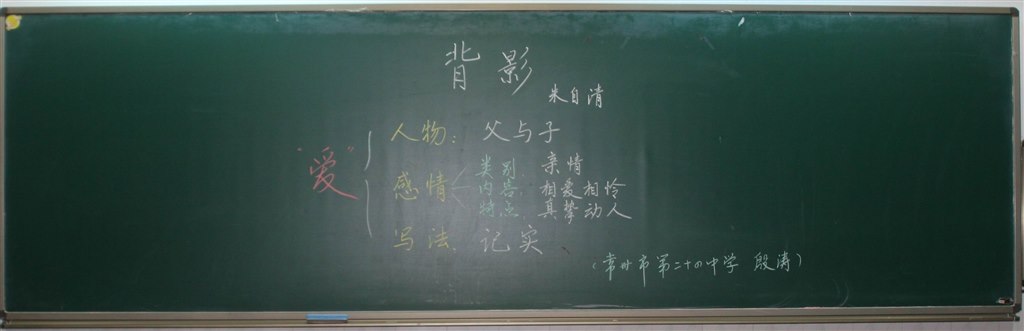 背影
朱自清
"爱"
人物：父与子
感情
类别 亲情
内容 相爱相怜
特点 真挚动人
写法 记实
（常州市第二十四中学 段涛）